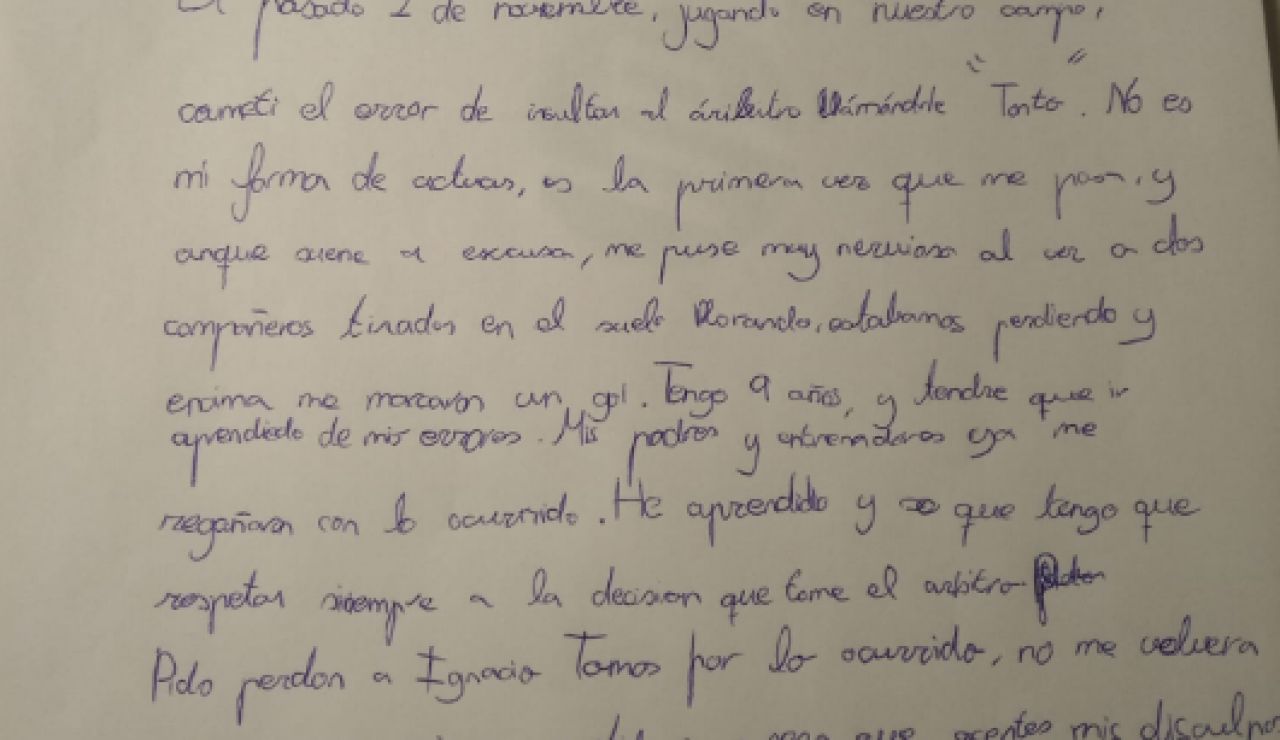 El pasado 2 de noviembre, jugando en nuestro campo,
cometi el error de insultar al árbitro llámándole "Tonto". No es
mi forma de actuar, es la primera vez que me pasa, y
anque suene a excusa, me puse muy nervioso al ver a dos
compañeros tirados en el suelo llorando, estabamos perdiendo y
encima me marcaron un gol. Tengo 9 años, y tendre que ir
aprendiedo de mis errores. Mis padres y entrenadores ya me
regañaron con lo ocurrido. He aprendido y se que tengo que
respetar siempre a la decision que tome el arbitro
Pido perdon a Ignacio Tamos por lo ocurrido, no me volvera
para que aceptes mis disculpas